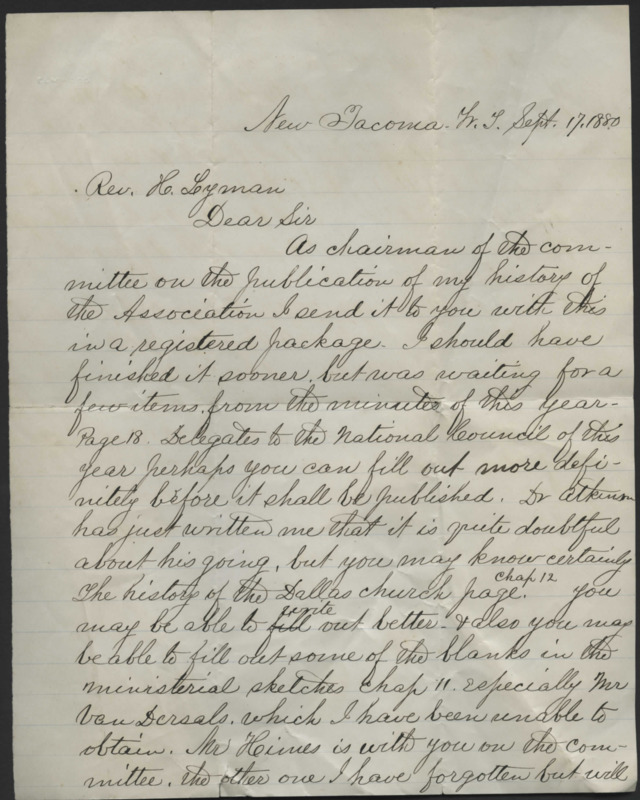 New Tacoma. W. T. Sept. 17. 1880
Rev. H. Lyman
Dear Sir
As chairman of the com-
mittee on the publication of my history of
the Association I send it to you with this
in a registered package. I should have
finished it sooner, but was waiting for a
few items, from the minutes of this year-
Page 18. Delegates to the National Council of this
year perhaps you can fill out more defi-
nitely before it shall be published. Dr Atkinson
has just written me that it is quite doubtful
about his going, but you may know certainly
The history of the Dallas church page. chap 12 you
may be able to fill write out better - & also you may
be able to fill out some of the blanks in the
ministerial sketches chap 11. especially Mr
Van Dersals. which I have been unable to
obtain. Mr Himes is with you on the com-
mittee. the other one I have forgotten but will